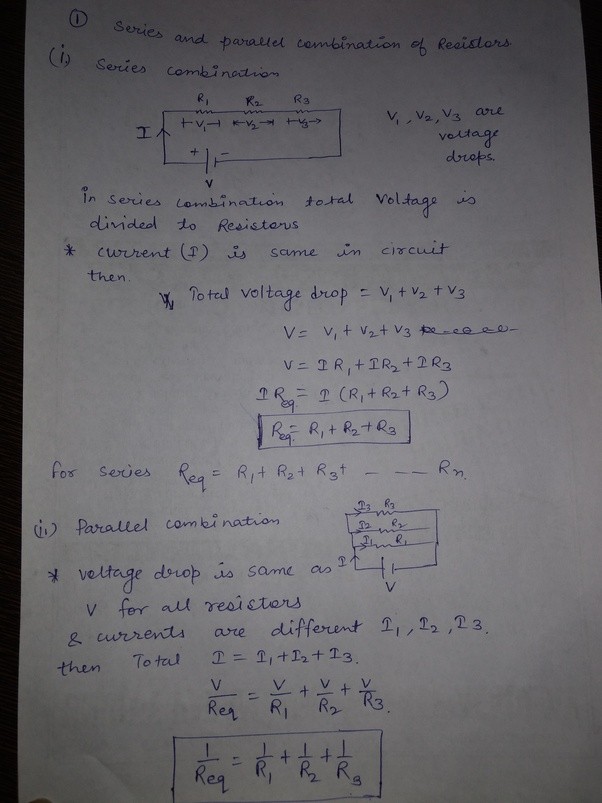 ① Series and parallel combination of Resistors
(i.) Series combination
R1 R2 R3
V1 V2 V3
I
+ -
V
V1, V2, V3 are
voltage
drops.
In series combination total voltage is
divided to Resistors
* current (I) is same in circuit
then.
Total voltage drop = V1 + V2 + V3
V = V1 + V2 + V3
V = IR1 + IR2 + IR3
IReq. = I (R1 + R2 + R3)
Req. = R1 + R2 + R3
for series Req = R1 + R2 + R3 + - - - - Rn.
(ii.) Parallel combination
I3 R3
I2 R2
I1 R1
I
V
* voltage drop is same as
V for all resistors
& currents are different I1, I2, I3.
then Total I = I1 + I2 + I3.
V/Req = V/R1 + V/R2 + V/R3.
1/Req = 1/R1 + 1/R2 + 1/R3